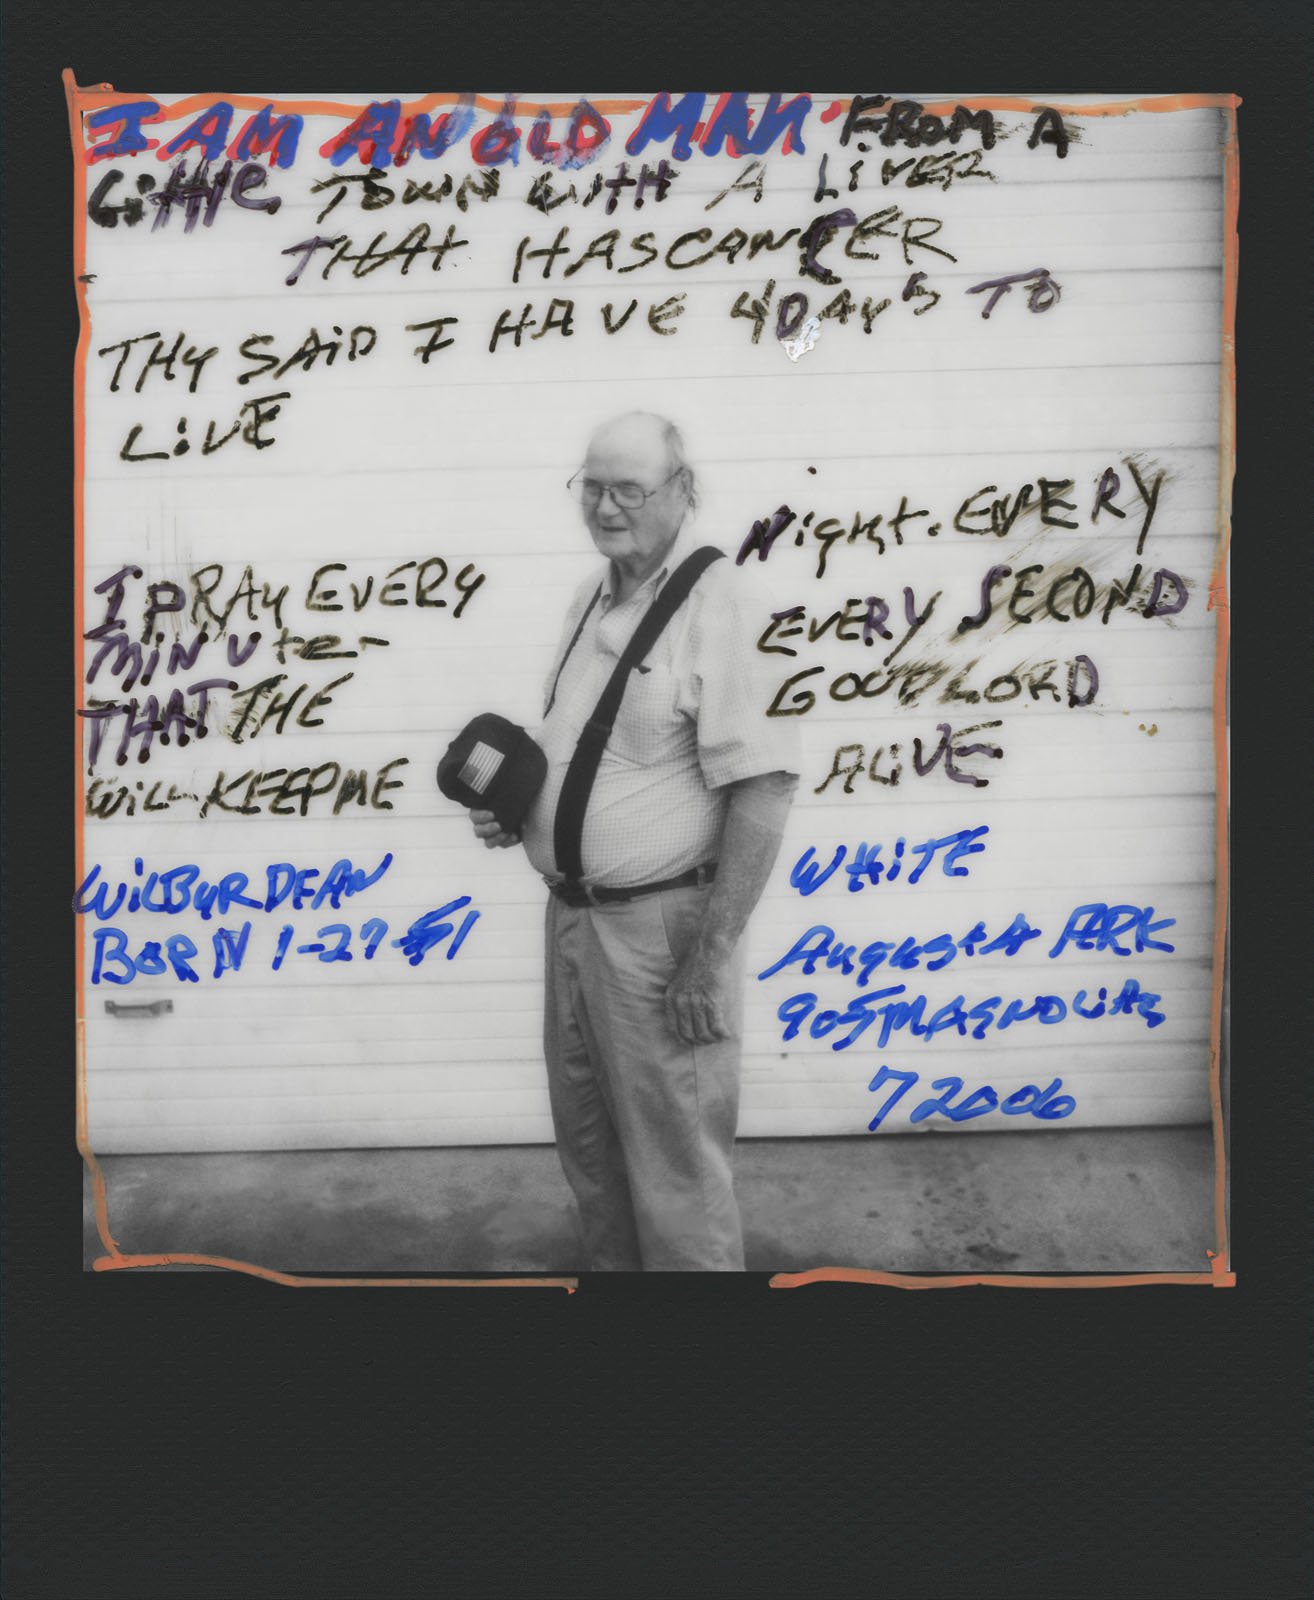 I AM AN OLD MAN FROM A
Little TOWN WITH A LiVER
THAt HAS CANCER
THY SAiD I HAVE 4 DAYS TO
LiVE
I PRAY EVERY Night. EVERY
MINUte- EVERY SECOND
THAT THE GOOD LORD
WiLL KEEP ME ALiVE
WiLBUR DEAN WHiTE
BORN 1-27-51 AugustA ARK
905 MAGNOLiA
72006